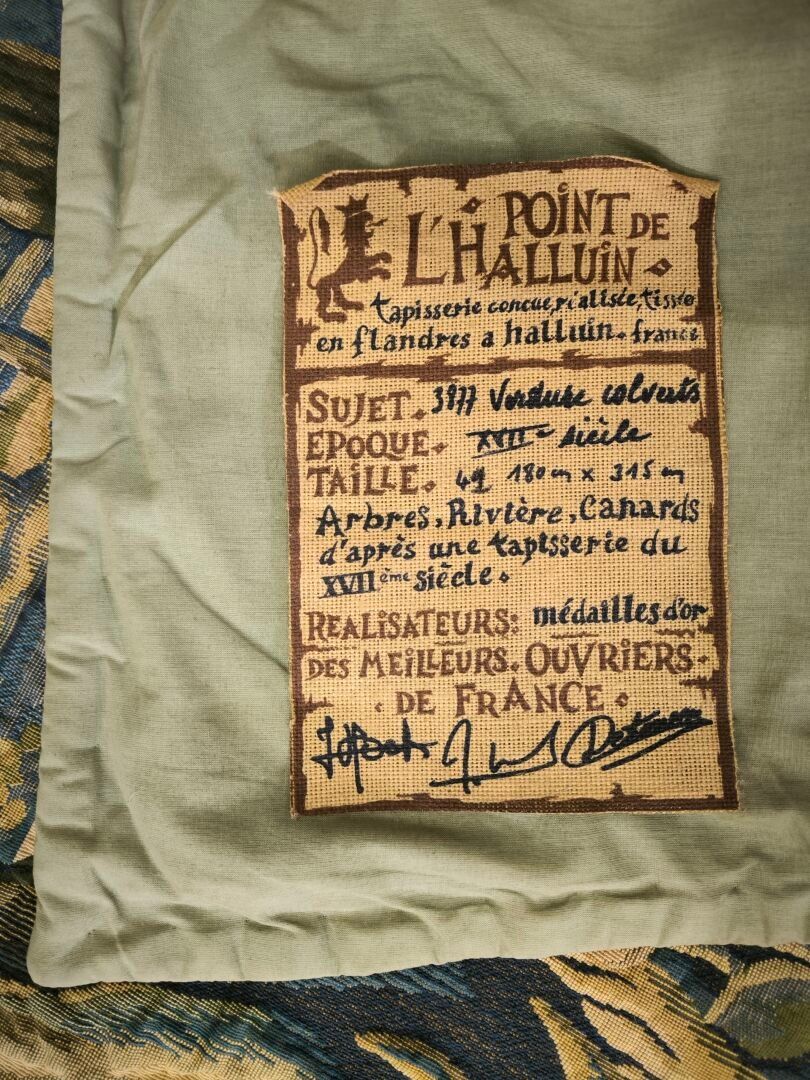 POINT DE
L'HALLUIN
tapisserie concue, réalisée, tissée
en flandres a halluin. france
SUJET. 3977 Verdure colverts
EPOQUE. XVII e siècle
TAILLE. 180 cm x 315 cm
Arbres, Rivière, Canards
d'après une tapisserie du
XVII ème siècle.
REALISATEURS: médailles d'or
DES MEILLEURS. OUVRIERS.
DE FRANCE.